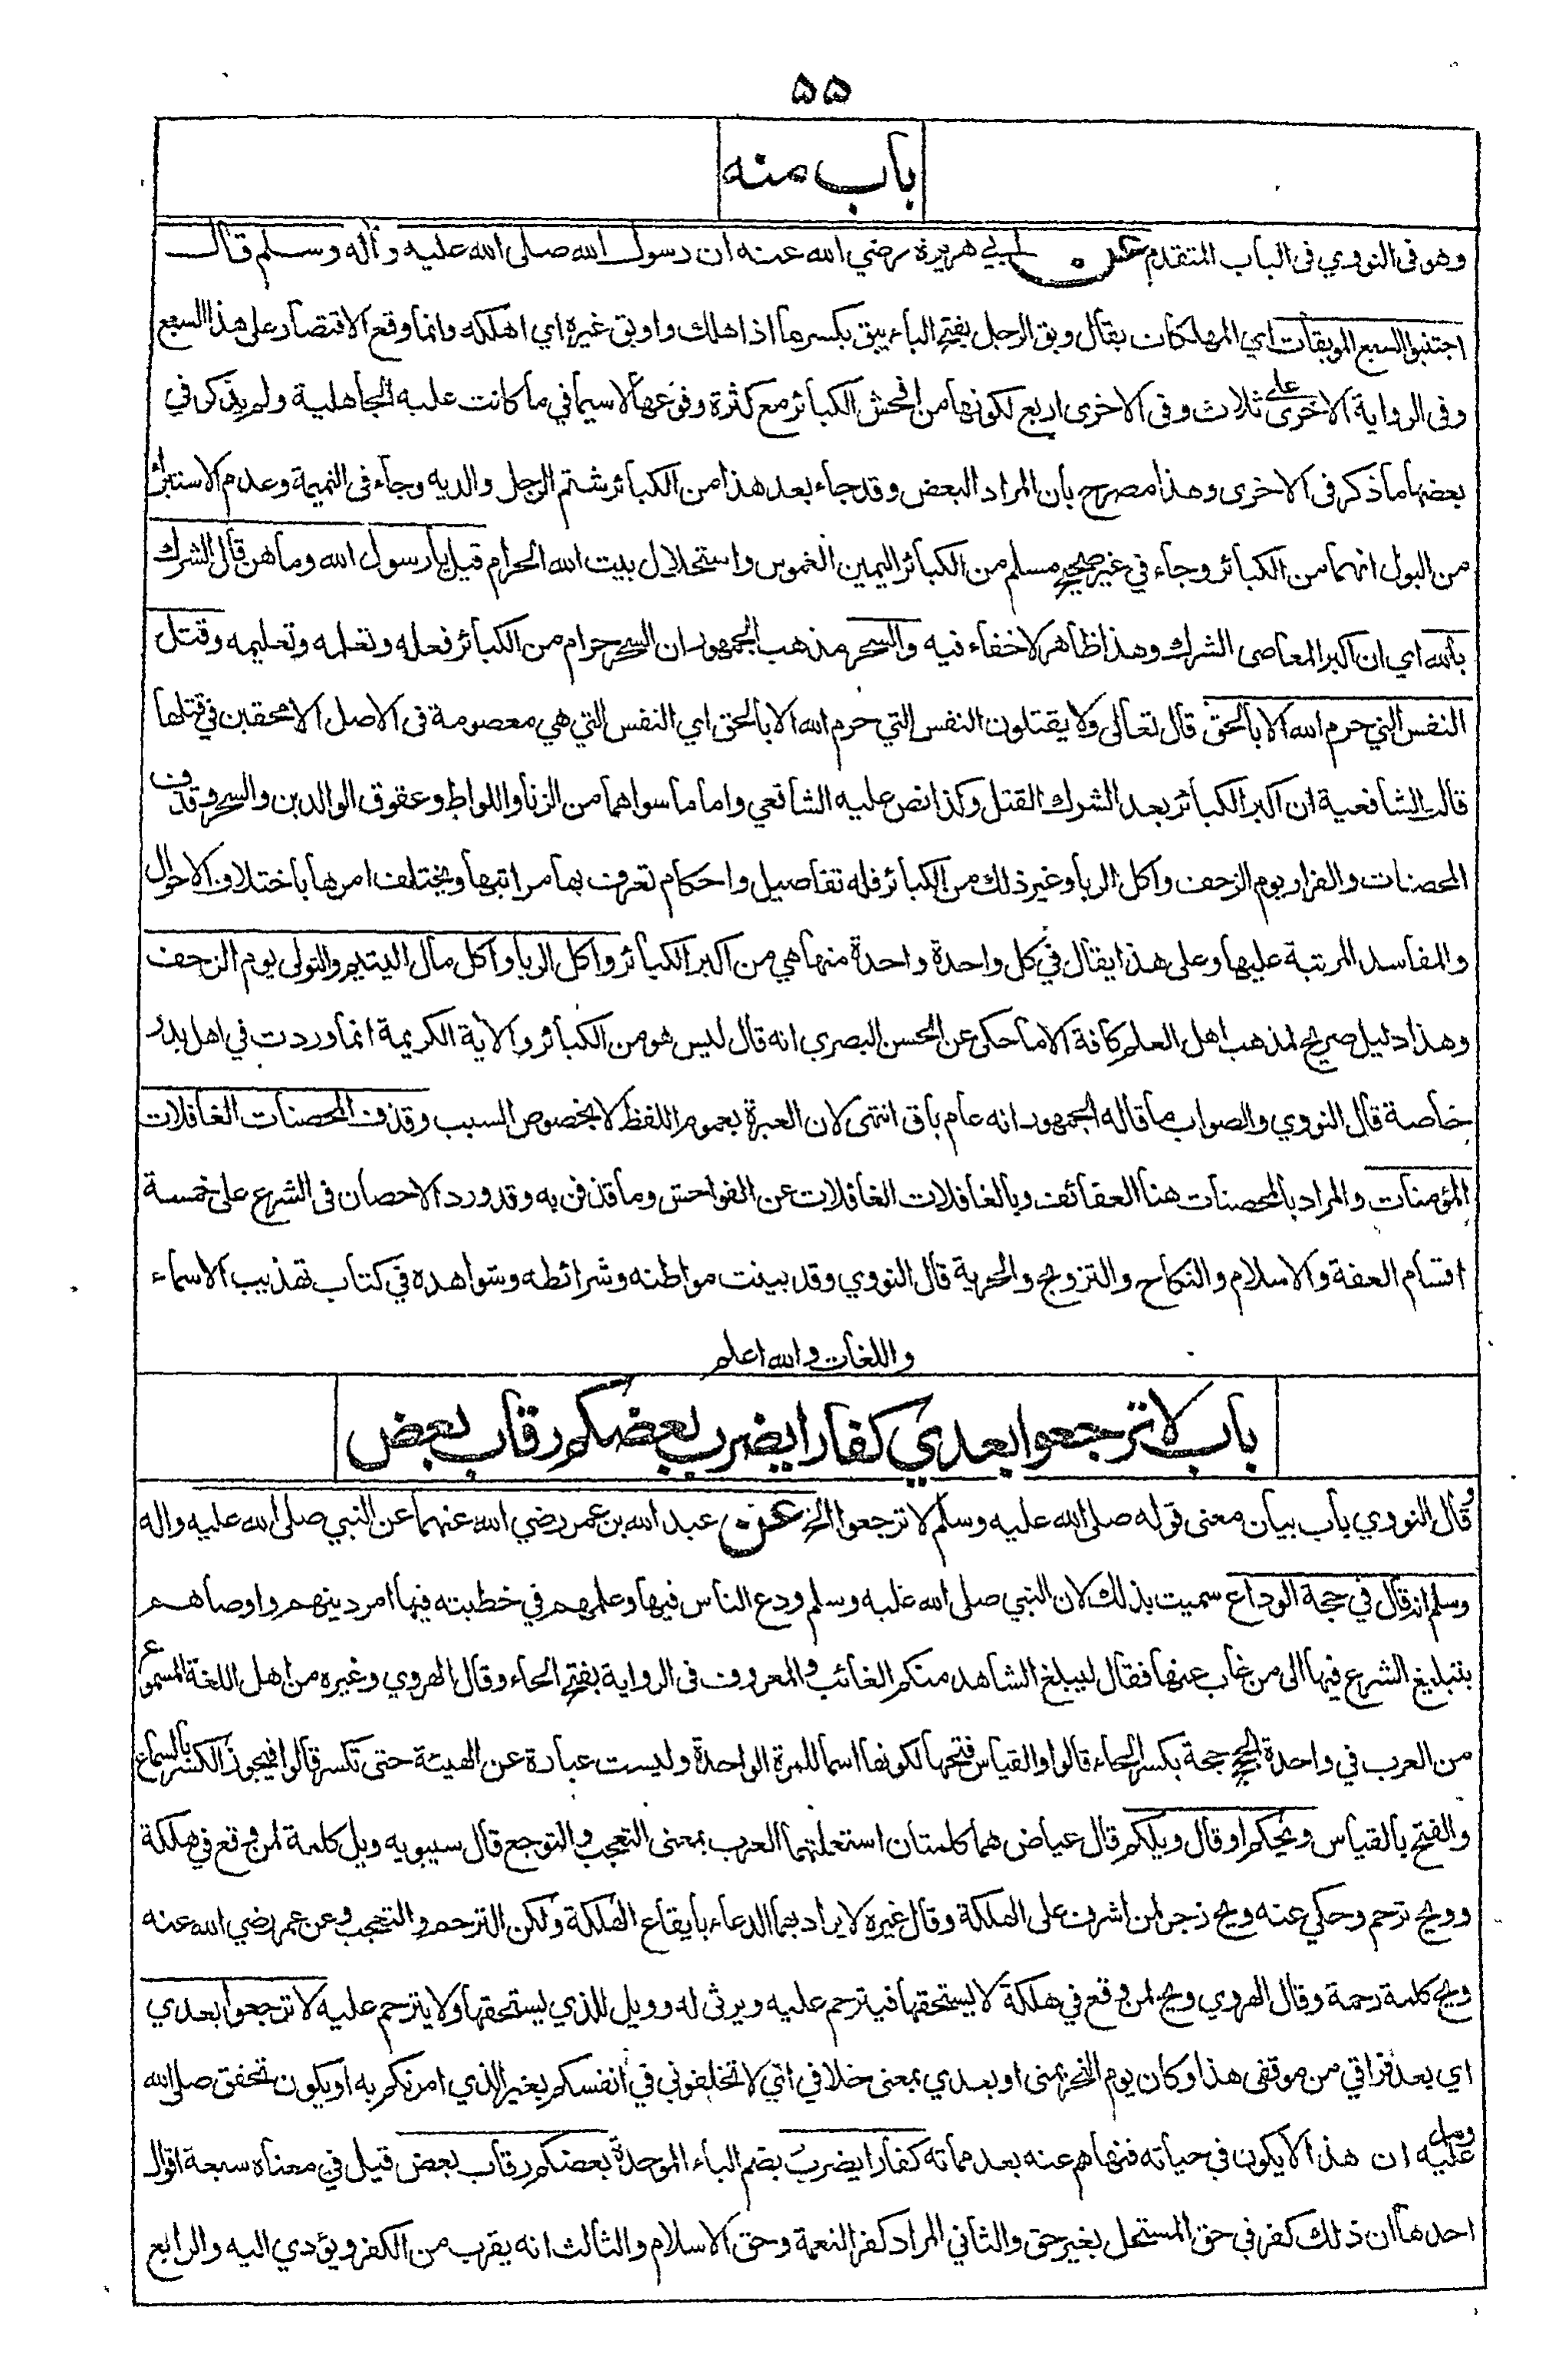 ۵۵
باب منه
وهو فى النووي فى الباب المتقدم عن ابي هريرة رضي الله عنه ان رسول الله صلى الله عليه وآله وسلم قال
اجتنبوا السبع الموبقات اي المهلكات يقال وبق الرجل بفتح الباء يبق بكسرها اذا هلك واوبق غيره اي اهلكه وانما وقع الاقتصار على هذا السبع
وفى الرواية الاخرى على ثلاث وفى الاخرى اربع لكونها من افحش الكبائر مع كثرة وقوعها لاسيما في ما كانت عليه الجاهلية ولم يذكر في
بعضها ما ذكر فى الاخرى وهذا مصرح بان المراد البعض وقد جاء بعد هذا من الكبائر شتم الرجل والديه وجاء فى النميمة وعدم الاستبراء
من البول انهما من الكبائر وجاء في غير صحيح مسلم من الكبائر اليمين الغموس واستحلال بيت الله الحرام قيل يا رسول الله وما هن قال الشرك
بالله اي ان اكبر المعاصى الشرك وهذا ظاهر لاخفاء فيه والسحر مذهب الجمهور ان السحر حرام من الكبائر فعله وتعلمه وتعليمه وقتل
النفس التي حرم الله الا بالحق قال تعالى ولا يقتلون النفس التي حرم الله الا بالحق اي النفس التي هي معصومة فى الاصل الا محقين في قتلها
قالت الشافعية ان اكبر الكبائر بعد الشرك القتل وكذا نص عليه الشافعي واما ما سواهما من الزنا واللواط وعقوق الوالدين والسحر وقذف
المحصنات والفرار يوم الزحف واكل الربا وغير ذلك من الكبائر فله تفاصيل واحكام تعرف بها مراتبها ويختلف امرها باختلاف الاحوال
والمفاسد المرتبة عليها وعلى هذا يقال في كل واحدة واحدة منها هي من اكبر الكبائر واكل الربا واكل مال اليتيم والتولى يوم الزحف
وهذا دليل صريح لمذهب اهل العلم كافة الا ما حكى عن الحسن البصري انه قال ليس هو من الكبائر والاية الكريمة انما وردت في اهل بدر
خاصة قال النووي والصواب ما قاله الجمهور انه عام باق انتهى لان العبرة بعموم اللفظ لا بخصوص السبب وقذف المحصنات الغافلات
المؤمنات والمراد بالمحصنات هنا العفائف وبالغافلات الغافلات عن الفواحش وما قذفن به وقد ورد الاحصان فى الشرع على خمسة
اقسام العفة والاسلام والنكاح والتزويج والحرية قال النووي وقد بينت مواطنه وشرائطه وشواهده في كتاب تهذيب الاسماء
واللغات والله اعلم
باب لا ترجعوا بعدي كفارا يضرب بعضكم رقاب بعض
وقال النووي باب بيان معنى قوله صلى الله عليه وسلم لا ترجعوا الخ عن عبد الله بن عمر رضي الله عنهما عن النبي صلى الله عليه واله
وسلم انه قال في حجة الوداع سميت بذلك لان النبي صلى الله عليه وسلم ودع الناس فيها وعلمهم في خطبته فيها امر دينهم واوصاهم
بتبليغ الشرع فيها الى من غاب عنها فقال ليبلغ الشاهد منكم الغائب والمعروف فى الرواية بفتح الحاء وقال الهروي وغيره من اهل اللغة المسموع
من العرب في واحدة الحج حجة بكسر الحاء قالوا والقياس فتحها لكونها اسما للمرة الواحدة وليست عبارة عن الهيئة حتى تكسر قالوا فيجوز الكسر بالسماع
والفتح بالقياس ويحكم او قال ويلكم قال عياض هما كلمتان استعملتهما العرب بمعنى التعجب والتوجع قال سيبويه ويل كلمة لمن وقع في هلكة
وويح ترحم وحكي عنه ويح زجر لمن اشرف على الهلكة وقال غيره لا يراد بهما الدعاء بايقاع الهلكة ولكن الترحم والتعجب وعن عمر رضي الله عنه
ويح كلمة رحمة وقال الهروي ويح لمن وقع في هلكة لا يستحقها فيترحم عليه ويرثى له وويل للذي يستحقها ولا يترحم عليه لا ترجعوا بعدي
اي بعد فراقي من موقفى هذا وكان يوم النحر بمنى او بعدي بمعنى خلافي اي لا تخلفوني في انفسكم بغير الذي امرتكم به او يكون تحقق صلى الله
عليه وسلم ان هذا لا يكون في حياته فنهاهم عنه بعد مماته كفارا يضرب بضم الباء الموحدة بعضكم رقاب بعض قيل في معناه سبعة اقوال
احدها ان ذلك كفر فى حق المستحل بغير حق والثاني المراد كفر النعمة وحق الاسلام والثالث انه يقرب من الكفر ويؤدي اليه والرابع